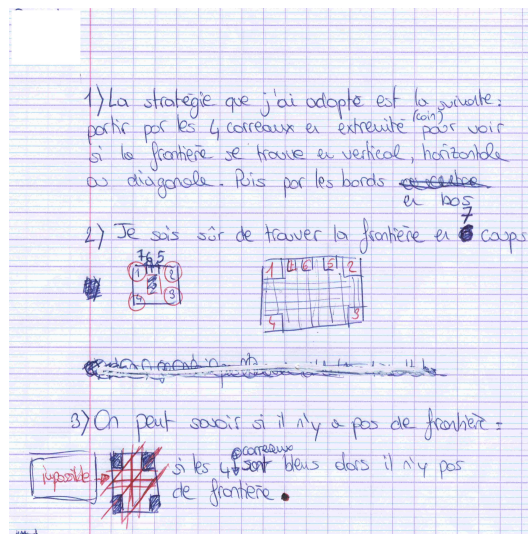 1) La stratégie que j'ai adopté est la suivante :
partir par les 4 carreaux en extremité (coin) pour voir
si la frontière se trouve en vertical, horizontale
ou diagonale. Puis par les bords
en bas
2) Je sais sûr de trouver la frontière en 7 coups
7 6 5
1 2
4 3
1 5 2
4 3
3) On peut savoir si il n'y a pas de frontière =
impossible
si les 4 carreaux sont bleus alors il n'y pas
de frontière.